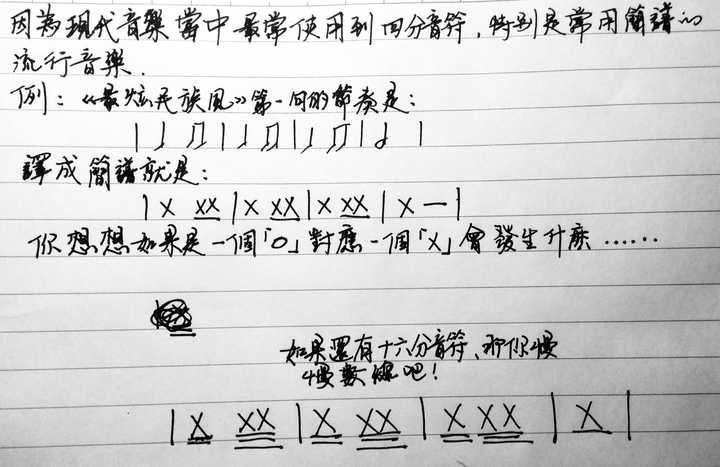 因為現代音樂當中最常使用到四分音符，特別是常用簡譜的
流行音樂．
例：《最炫民族風》第一句的節奏是：
| ♩ ♫ | ♩ ♫ | ♩ ♫ | 𝅗𝅥 |
譯成簡譜就是：
| X XX | X XX | X XX | X — |
你想想如果是一個「O」對應一個「X」會發生什麼……
如果還有十六分音符、那你慢
慢數
吧！
| X XX | X XX | X XX | X |